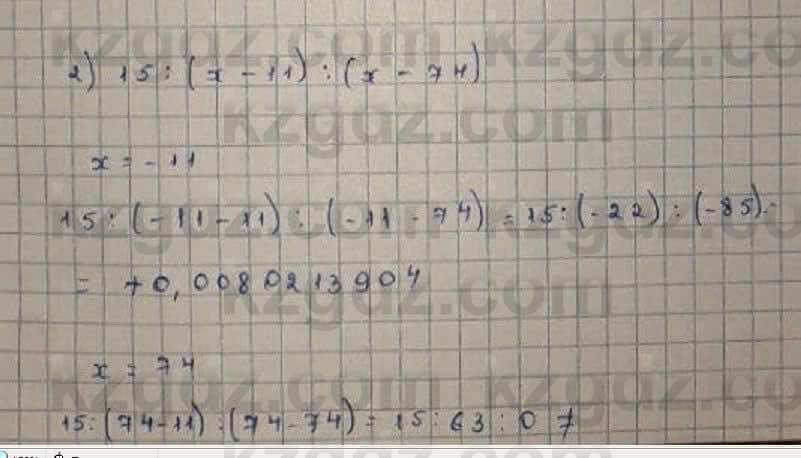 kzgdz.com kzgdz.com
2) 15 : (x - 11) : (x - 74)
kzgdz.com
x = - 11
kzgdz.com kzgdz.com
15 : (-11 - 11) : (-11 - 74) = 15 : (-22) : (-85) =
= + 0,0080213904
kzgdz.com
x = 74
kzgdz.com kzgdz.com
15 : (74 - 11) : (74 - 74) = 15 : 63 : 0 ≠